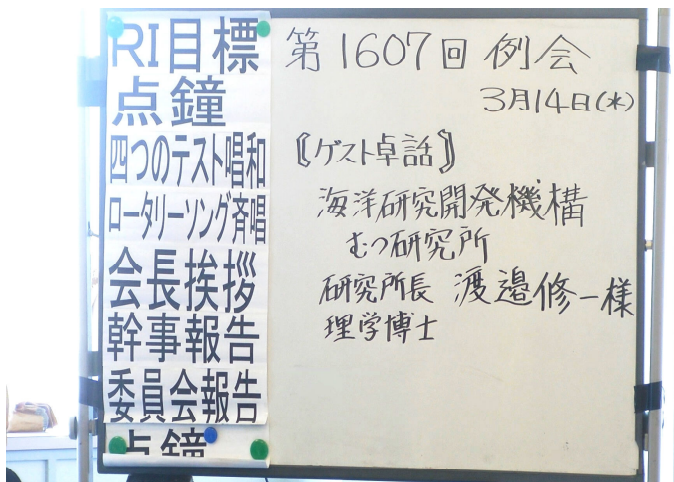 RI目標
点鐘
四つのテスト唱和
ロータリーソング斉唱
会長挨拶
幹事報告
委員会報告
点鐘
第1607回 例会
3月14日(水)
《ゲスト卓話》
海洋研究開発機構
むつ研究所
研究所長 渡邉修一様
理学博士